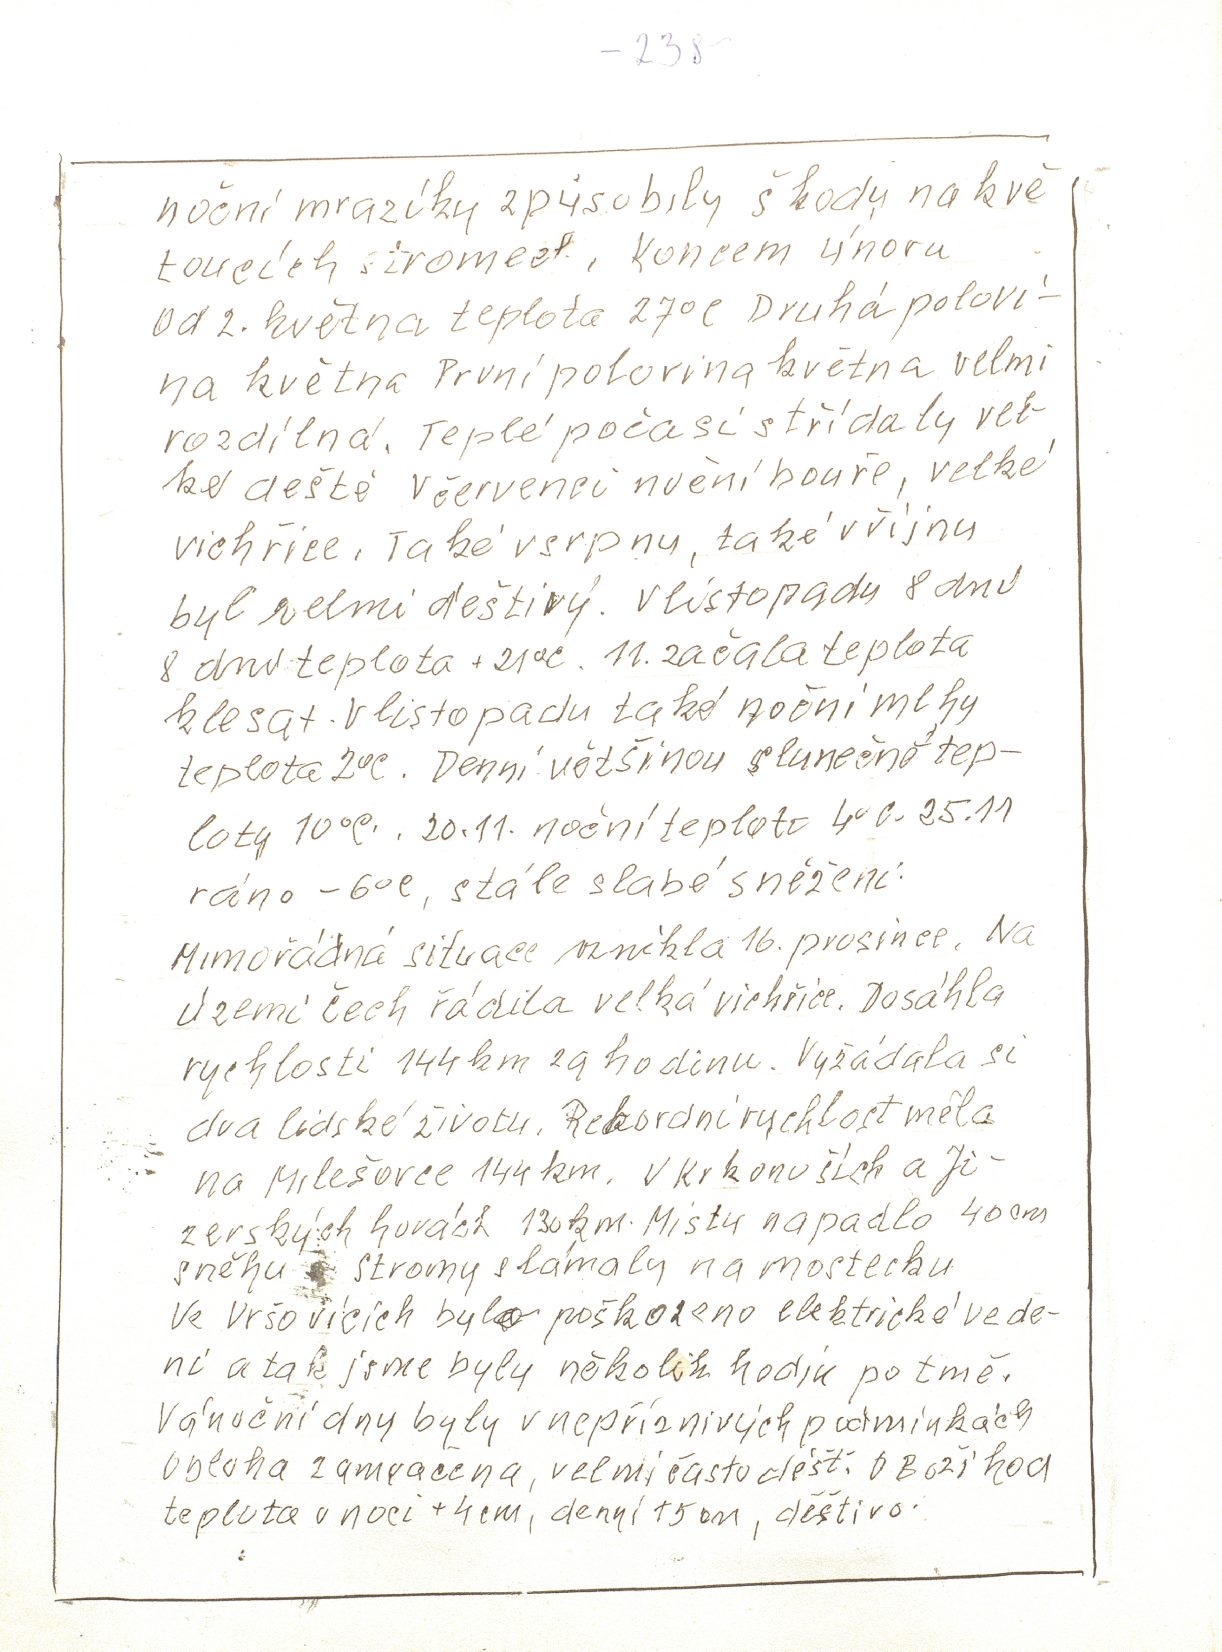 - 238 -
noční mrazíky způsobily škody na kvě
toucích stromech, Koncem února
Od 2. května teplota 27°C Druhá polovi-
na května První polovina května velmi
rozdílná. Teplé počasí střídaly vel-
ké deště V červenci noční bouře, velké
vichřice. Také v srpnu, také v říjnu
byl velmi deštivý. V listopadu 8 dnů
8 dnů teplota + 21°C. 11. začala teplota
klesat. V listopadu také noční mlhy
teplota 2°C. Denní většinou slunečné tep-
loty 10°C. . 20.11. noční teplota 4°C. 25.11
ráno - 6°C, stále slabé sněžení.
Mimořádná situace vznikla 16. prosince. Na
území Čech řádila velká vichřice. Dosáhla
rychlosti 144 km za hodinu. Vyžádala si
dva lidské životy. Rekordní rychlost měla
na Milešovce 144 km. V Krkonoších a Ji-
zerských horách 130 km. Místy napadlo 40 cm
sněhu Stromy slámaly na mostecku
Ve Vršovicích bylo poškozeno elektrické vede-
ní a tak jsme byly několik hodin po tmě.
Vánoční dny byly v nepříznivých podmínkách
Obloha zamračena, velmi často déšť. O Boží hod
teplota v noci + 4 cm, denní + 5 cm, deštivo.